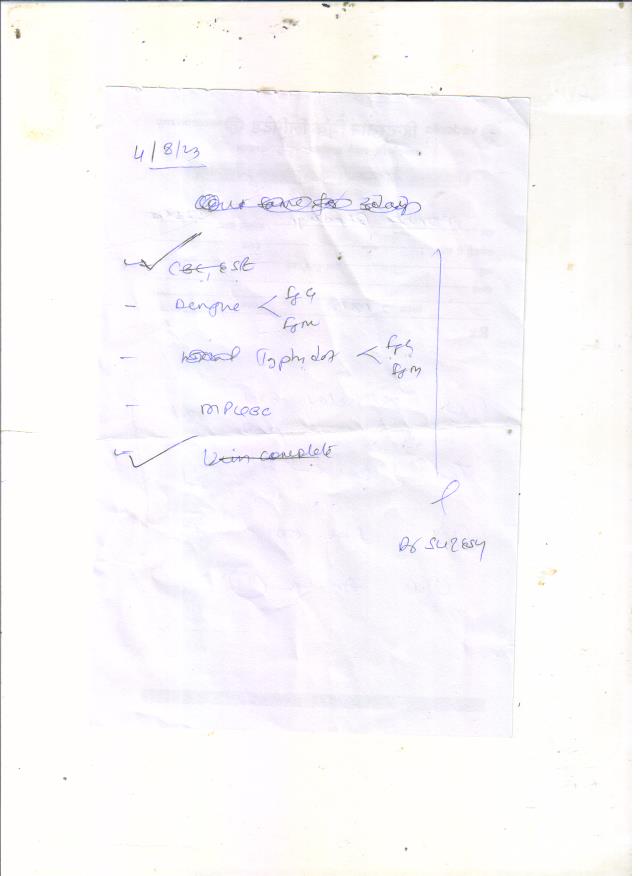 4/8/23
CBC, ESR
- Dengue < IgG
IgM
- Typhidot < IgG
IgM
- MPQBC
Urin complete
Dr SURESH